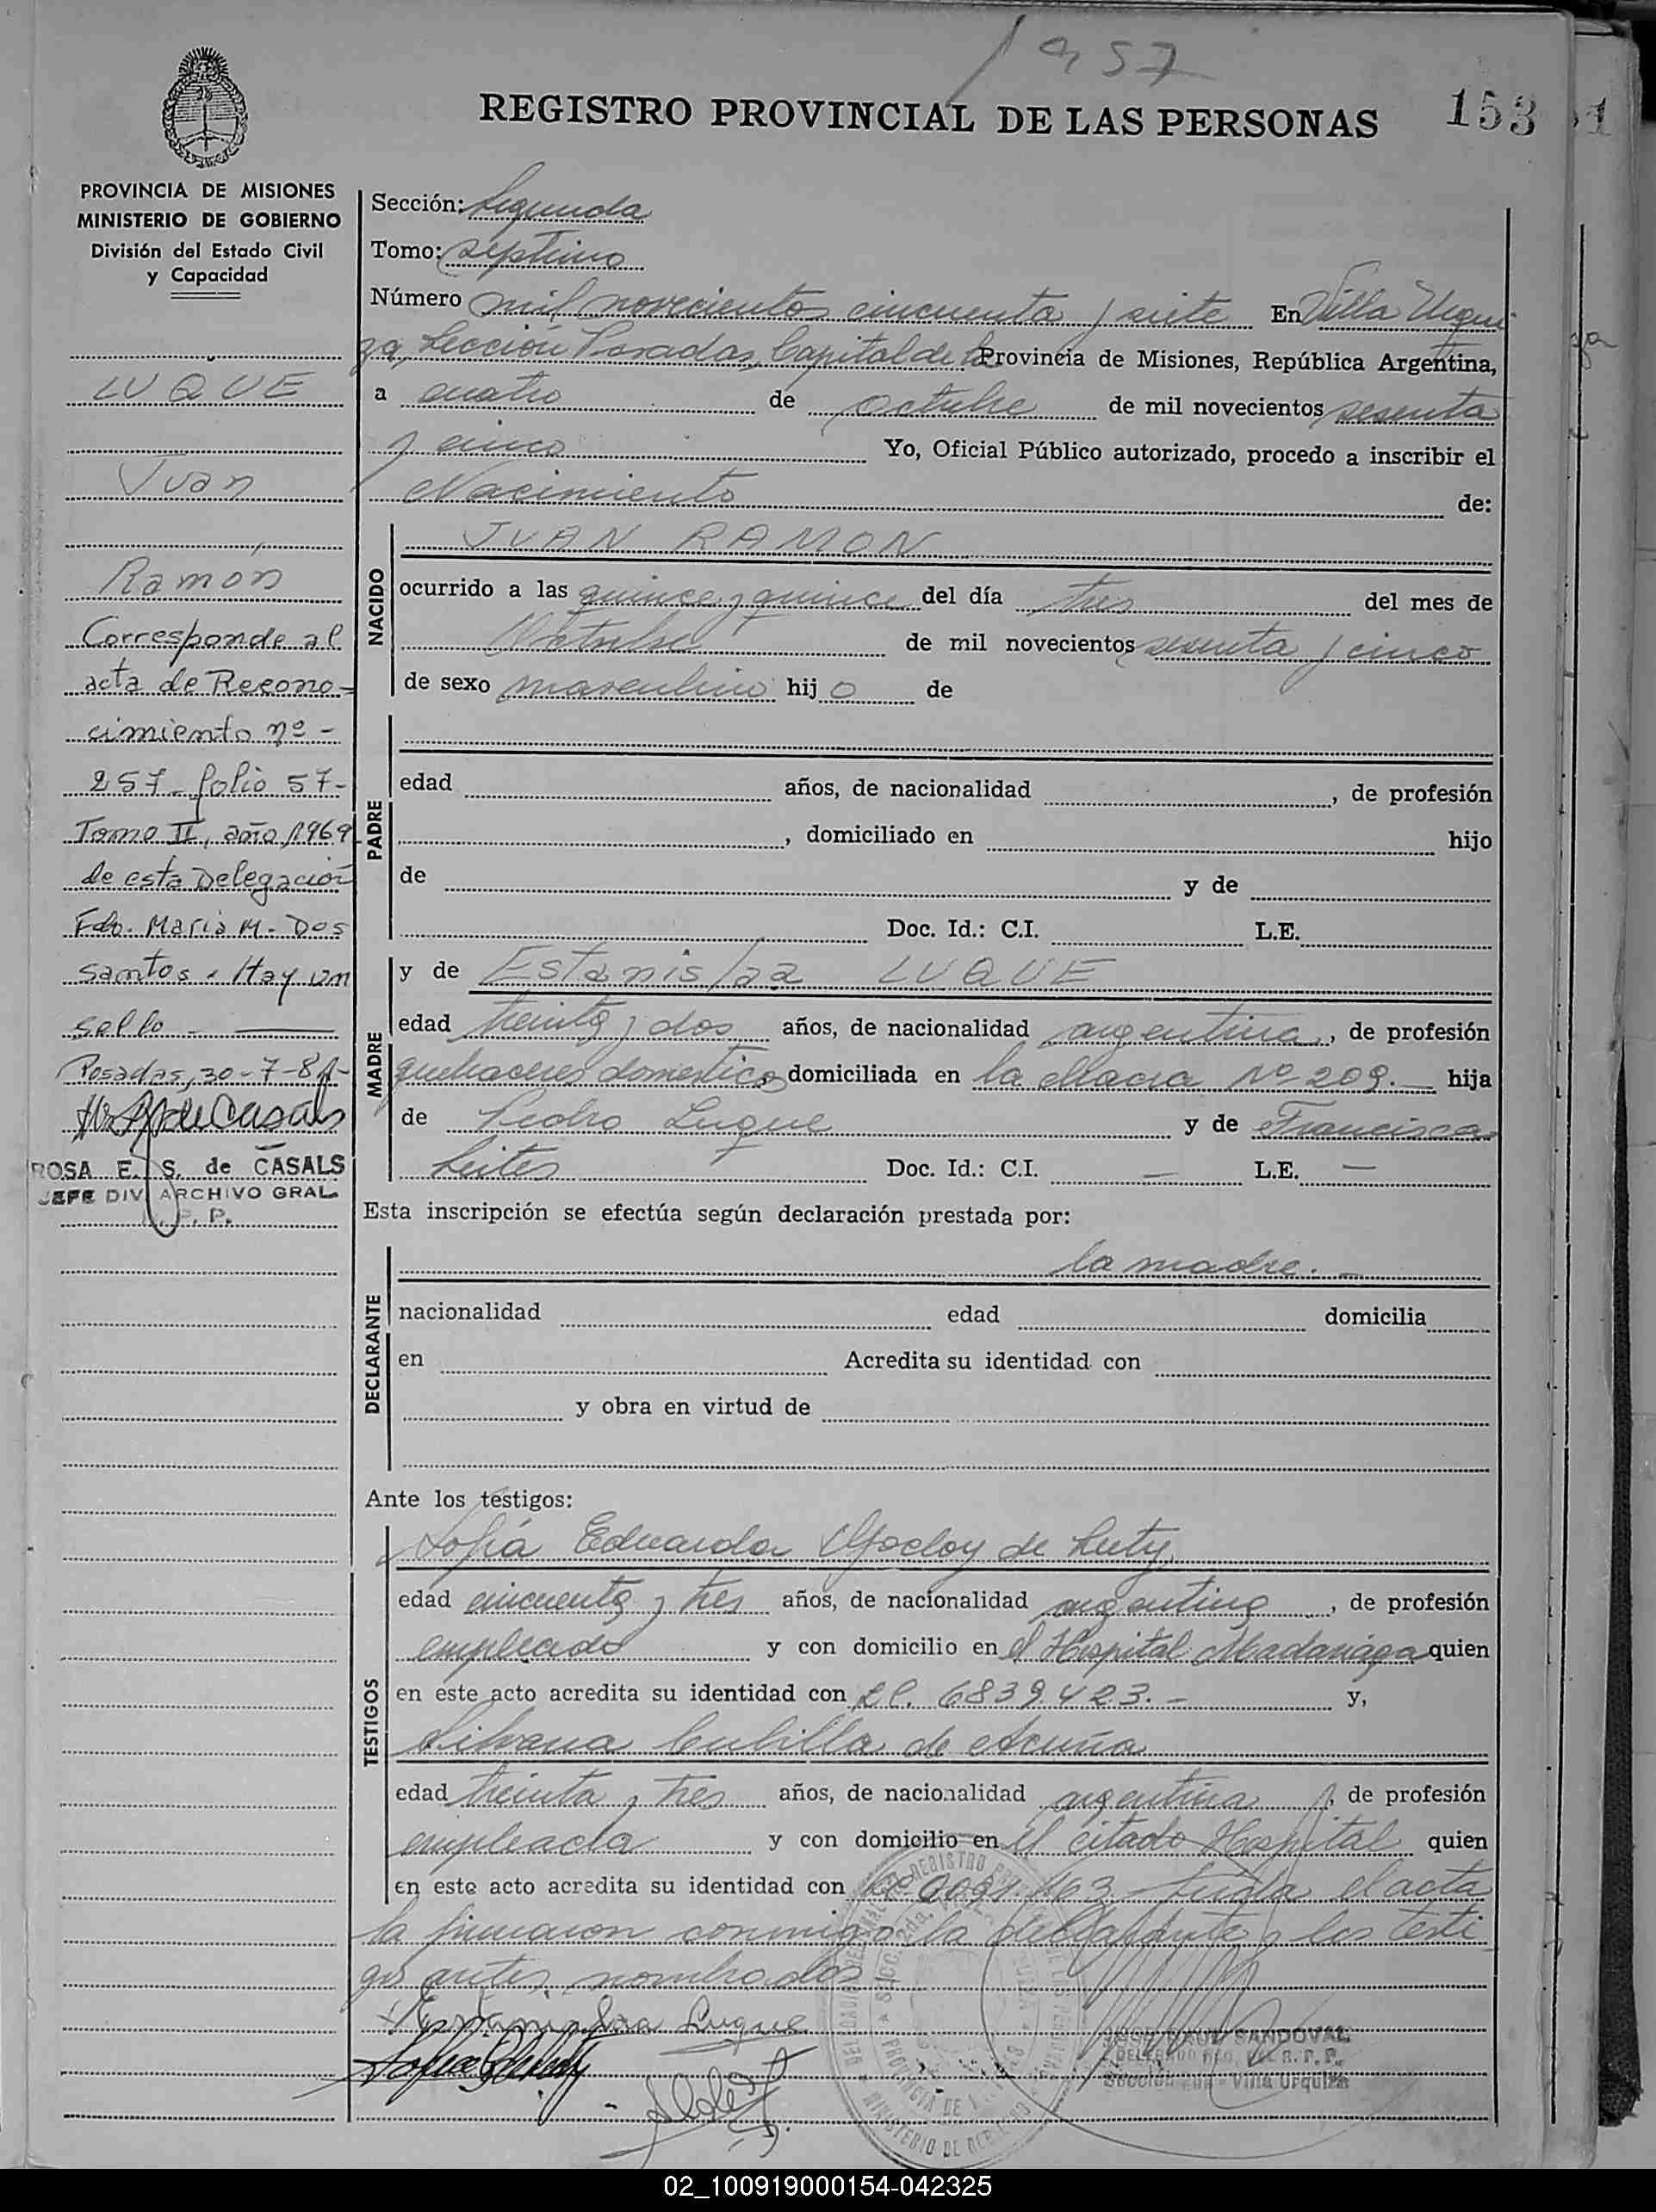 1957
REGISTRO PROVINCIAL DE LAS PERSONAS 153
PROVINCIA DE MISIONES
MINISTERIO DE GOBIERNO
División del Estado Civil
y Capacidad
LUQUE
Juan
Ramón
Corresponde al
acta de Recono-
cimiento nº -
257 - folio 57-
Tomo II, año 1969
de esta Delegación
Fdo. Maria M. Dos
Santos. Hay un
sello -
Posadas, 30-7-81-
ROSA E. S. de CASALS
JEFE DIV ARCHIVO GRAL.
R. P. P.
Sección: Segunda
Tomo: septimo
Número mil novecientos cincuenta y siete En Villa Urqui
za, Sección Posadas, Capital de la Provincia de Misiones, República Argentina,
a cuatro de octubre de mil novecientos sesenta
y cinco Yo, Oficial Público autorizado, procedo a inscribir el
Nacimiento de:
NACIDO
JUAN RAMON
ocurrido a las quince y quince del día tres del mes de
Octubre de mil novecientos sesenta y cinco
de sexo masculino hijo de
PADRE
edad años, de nacionalidad , de profesión
, domiciliado en hijo
de y de
Doc. Id.: C.I. L.E.
MADRE
y de Estanislaa LUQUE
edad treinta y dos años, de nacionalidad argentina, de profesión
quehaceres domesticos domiciliada en la Chacra Nº 209. — hija
de Pedro Luque y de Francisca
Leites Doc. Id.: C.I. — L.E. —
Esta inscripción se efectúa según declaración prestada por:
DECLARANTE
la madre. —
nacionalidad edad domicilia
en Acredita su identidad con
y obra en virtud de
Ante los testigos:
TESTIGOS
Sofía Eduarda de
edad cincuenta y tres años, de nacionalidad argentina, de profesión
empleada y con domicilio en el Hospital Madariaga quien
en este acto acredita su identidad con LC. 6839.423. - y,
Silvana Cubilla de Acuña
edad treinta y tres años, de nacionalidad argentina, de profesión
empleada y con domicilio en el citado Hospital quien
en este acto acredita su identidad con Leída el acta
la firmaron conmigo la declarante y los testi
gos antes nombrados
Estanislaa Luque
RAUL SANDOVAL
DELEGADO R. P. P.
Sección 2da - Villa Urquiza
02_100919000154-042325